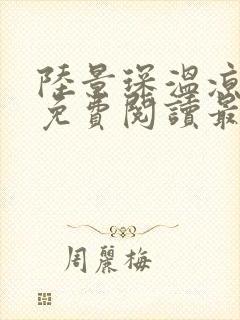 陸景琛溫涼
免費閱讀最
周麗梅